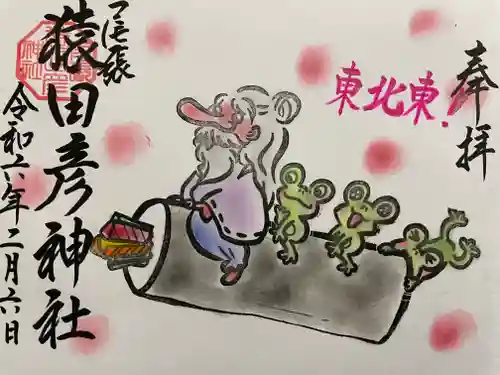 奉拝
東北東.
尾張
猿田彦神社
令和六年二月六日